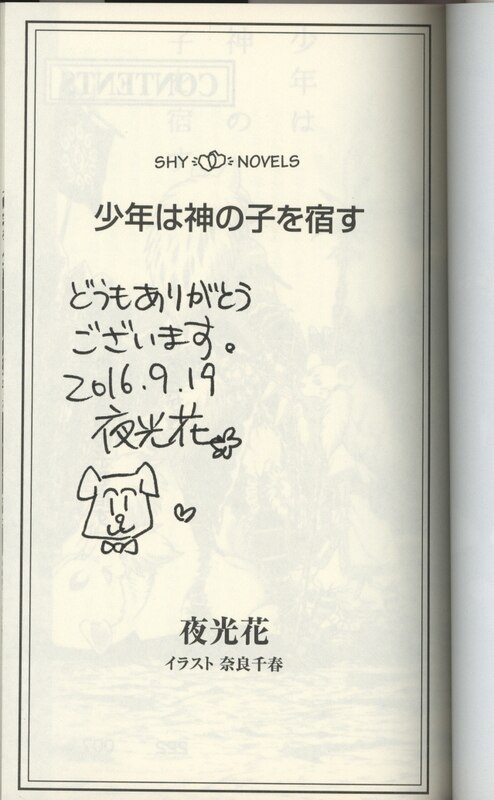 SHY NOVELS
少年は神の子を宿す
どうもありがとう
ございます。
2016.9.19
夜光花
夜光花
イラスト 奈良千春